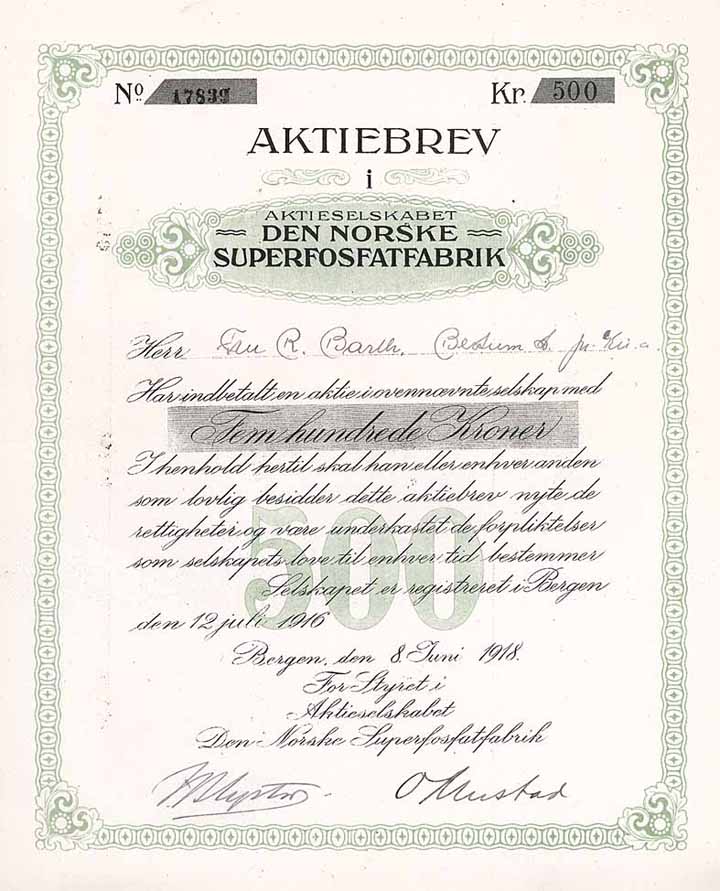 No 17839 Kr. 500
AKTIEBREV
i
AKTIESELSKABET
DEN NORSKE
SUPERFOSFATFABRIK
Herr R. Barth,
Har indbetalt en aktie i ovennævnte selskap med
Fem hundrede Kroner
I henhold hertil skal han eller enhver anden
som lovlig besidder dette aktiebrev nyte de
rettigheter og være underkastet de forpliktelser
som selskapets love til enhver tid bestemmer
500
Selskapet er registreret i Bergen
den 12 juli 1916
Bergen, den 8. Juni 1918.
For Styret i
Aktieselskabet
Den Norske Superfosfatfabrik
O Mustad